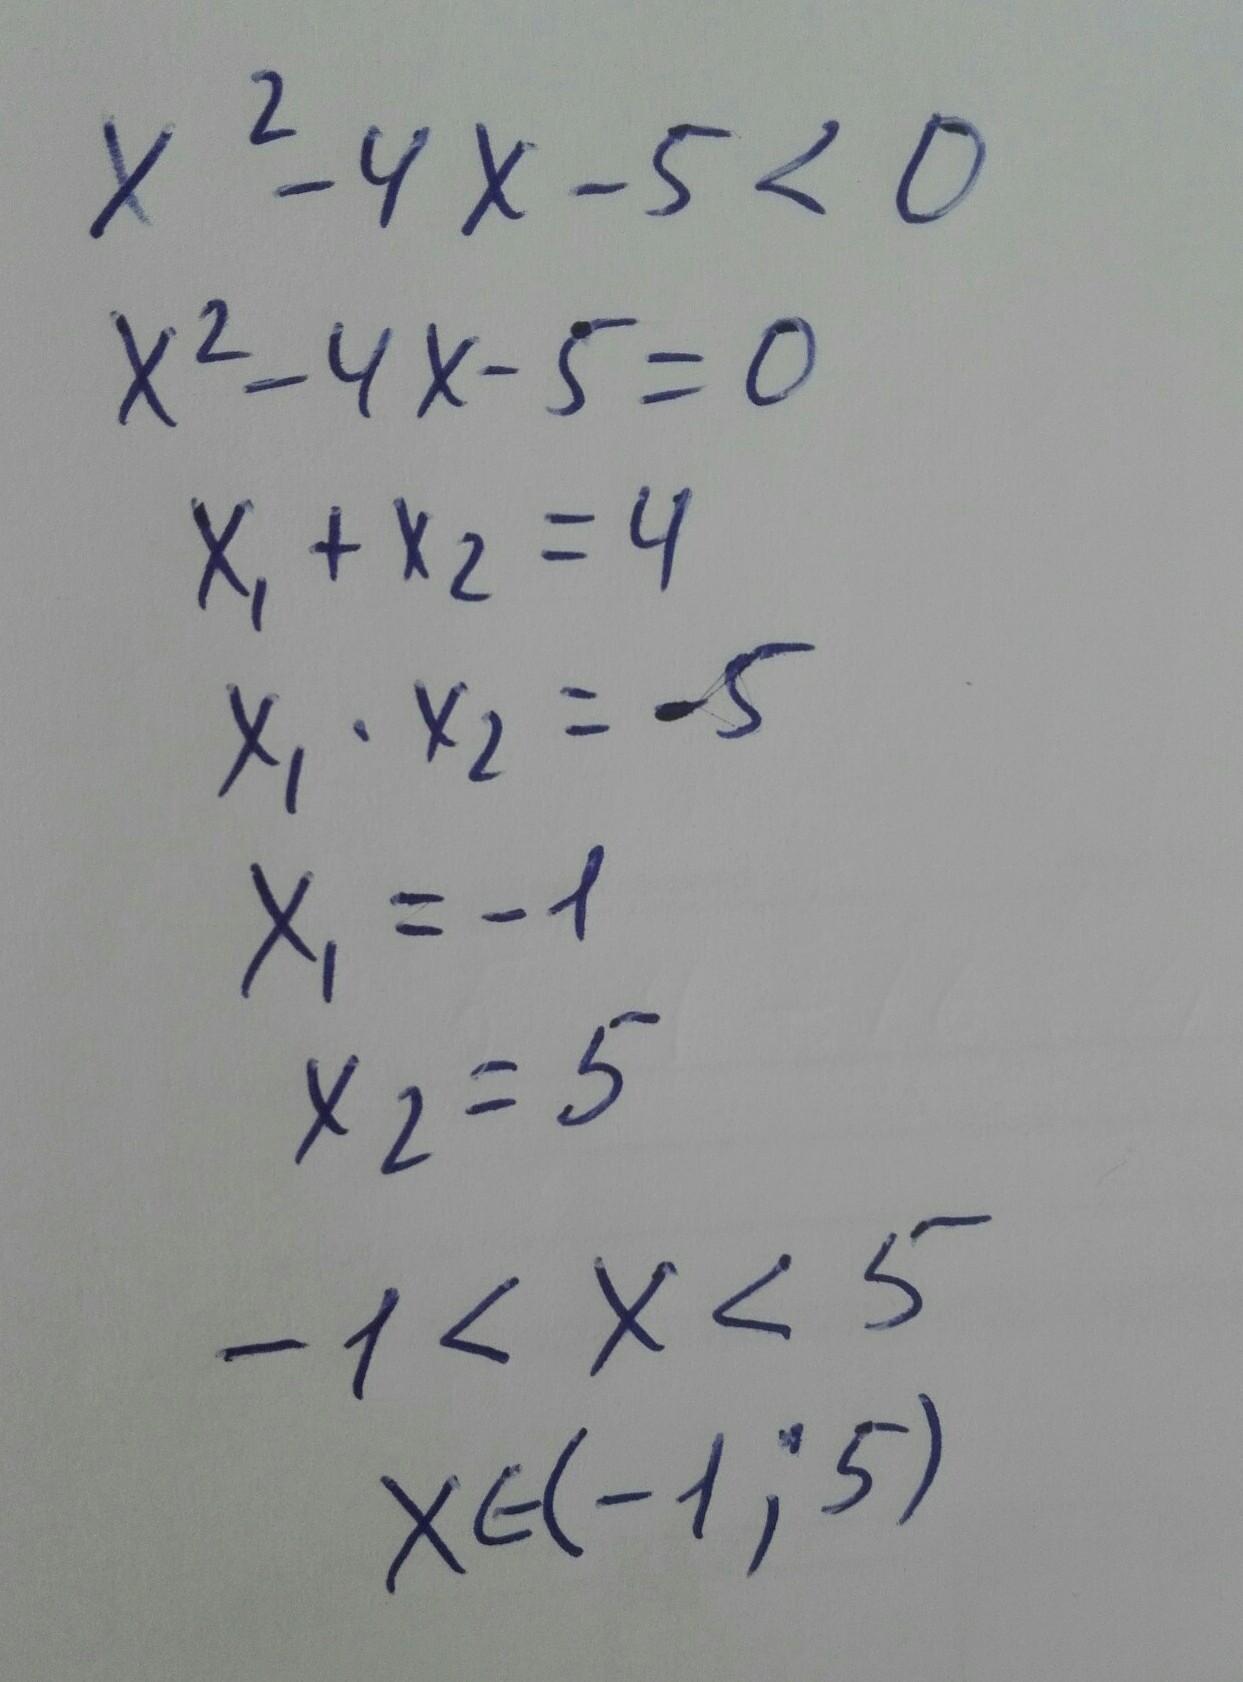 x²-4x-5<0
x²-4x-5=0
x₁+x₂=4
x₁·x₂=-5
x₁=-1
x₂=5
-1<x<5
x∈(-1;5)